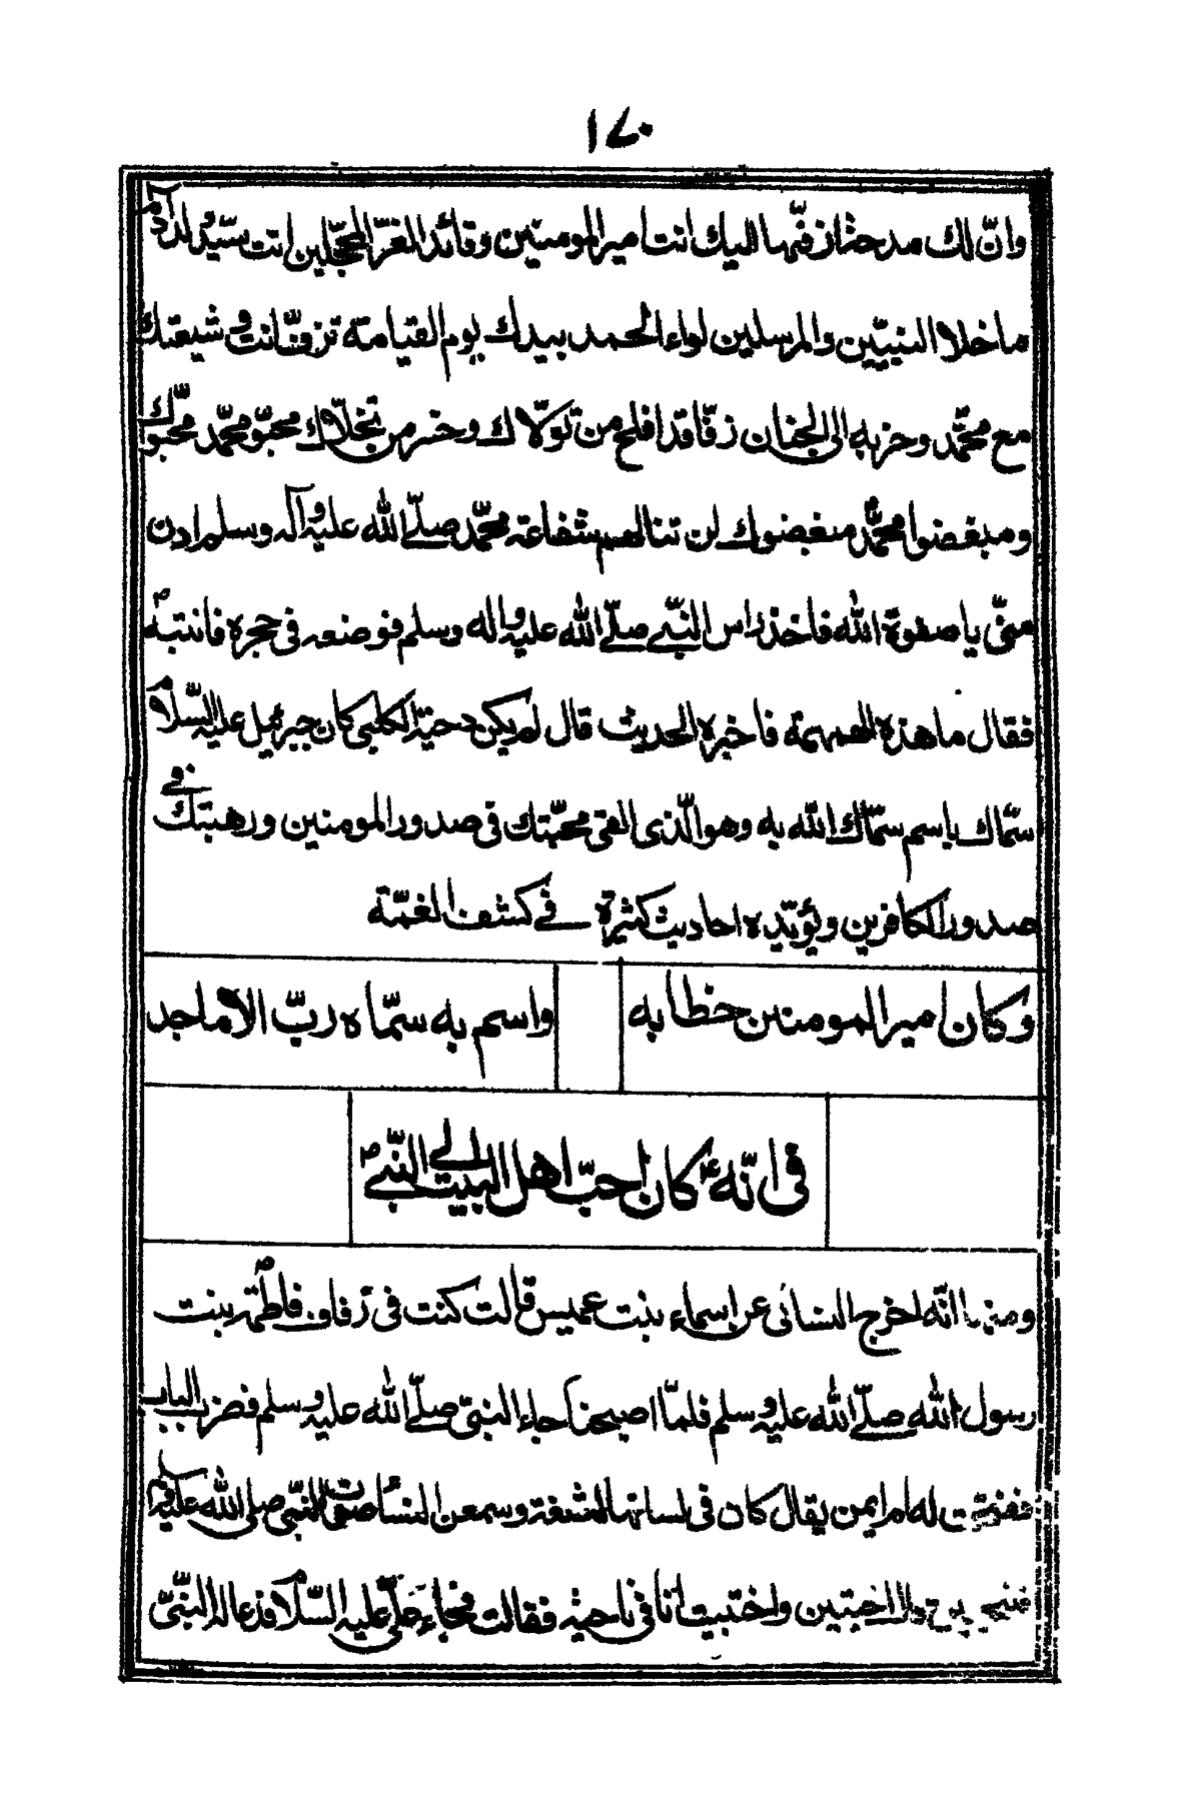 ١٧٠
وانّ لك مدحة ازفّها اليك انت امير المومنين وقائد الغرّ المحجّلين انت سيّد ولد آدم
ما خلا النبيّين والمرسلين لواء الحمد بيدك يوم القيامة تزفّ انت وشيعتك
مع محمّد وحزبه الى الجنان زفّا قد افلح من تولّاك وخسر من تخلّاك محبّو محمّد محبّوك
ومبغضوا محمّد مبغضوك لن تنالهم شفاعة محمّد صلّے الله عليه وآله وسلم ادن
منّى يا صفوة الله فاخذ راس النبّے صلّے الله عليه واله وسلم فوضعه فى حجره فانتبه ص
فقال ما هذه الهمهمة فاخبره الحديث قال لم يكن دحية الكلبى كان جبرئيل عليه السّلام
سمّاك باسم سمّاك الله به وهو الّذى القى محبّتك فى صدور المومنين ورهبتك فے
صدور الكافرين ويؤيّده احاديث كثيرة فے كشف الغمّة
وكان امير المومنين خطابه واسم به سمّاه ربّ الاماجد
فى انّه ع كان احبّ اهل البيت الے النبّے ص
ومنها انّه اخرج النسائى عن اسماء بنت عميس قالت كنت فى زفاف فاطمة بنت
رسول الله صلّے الله عليه وسلم فلمّا اصبحنا جاء النبىّ صلّے الله عليه وسلم فضرب الباب
ففتحت له ام ايمن يقال كان فى لسانها لثغة وسمعن النسأ صوت النبّى صلى الله عليه وسلم
فتنحين واختبيت انا فى ناحية فقالت فجاء علىّ عليه السّلام فدعا له النبّىّ